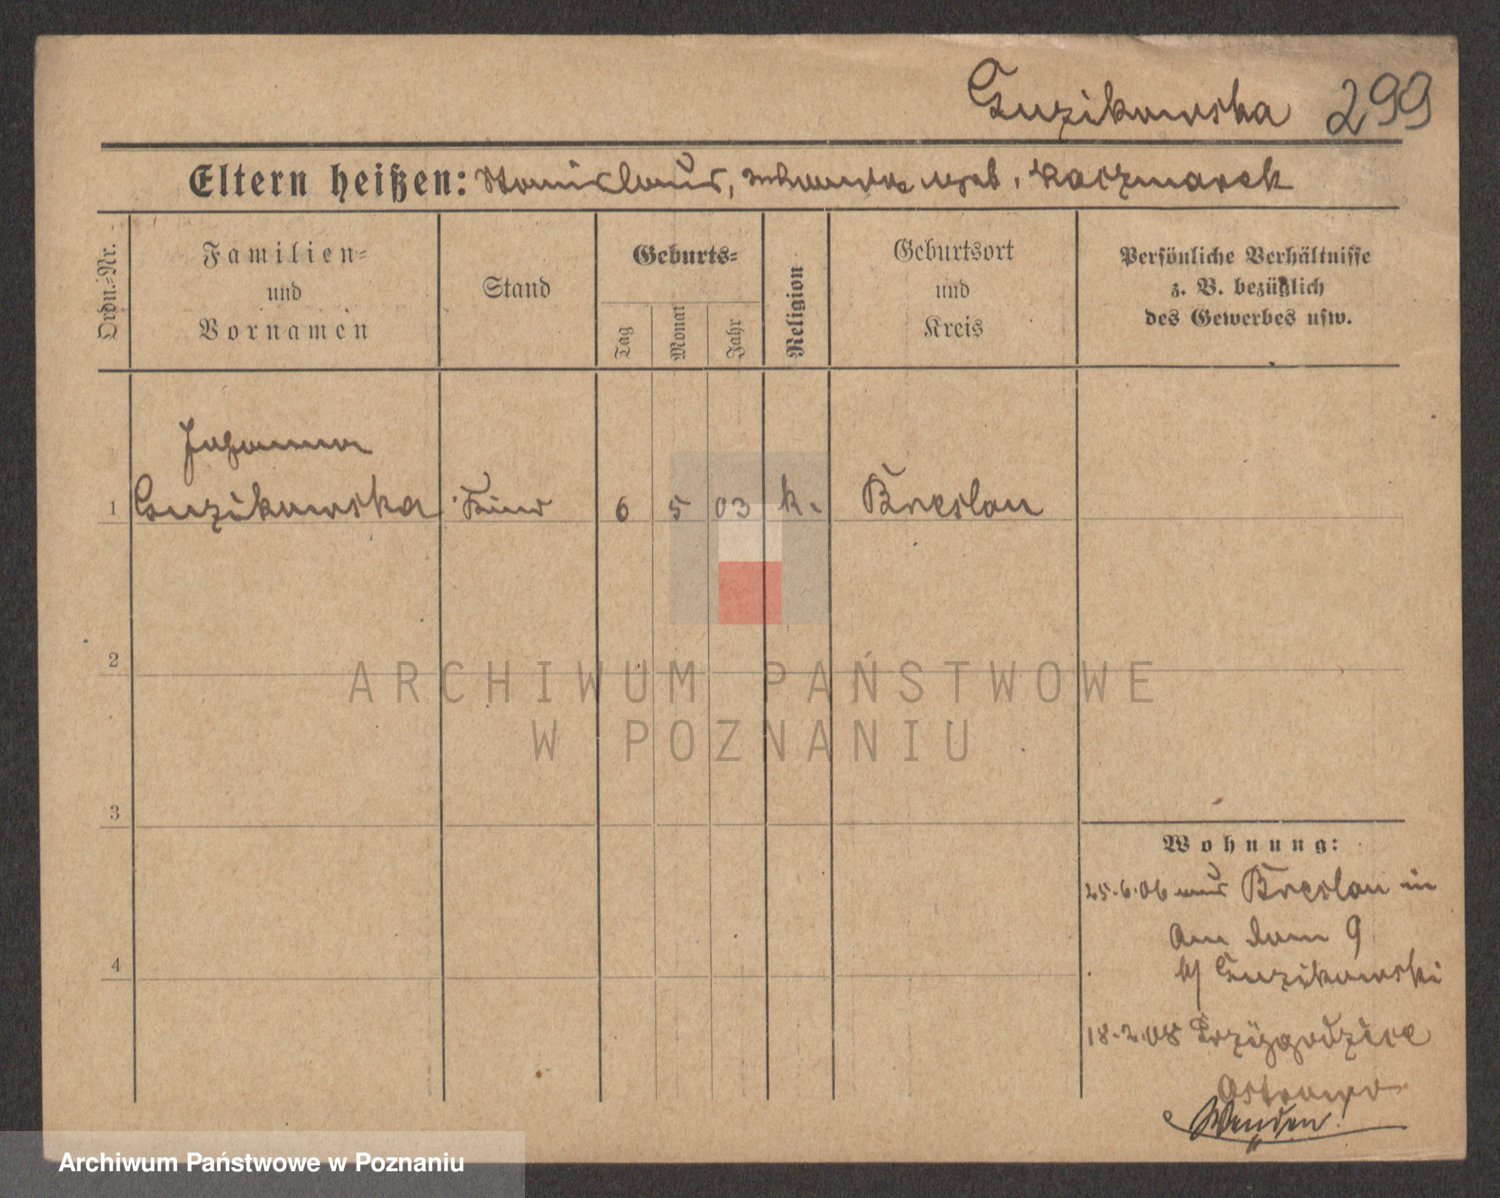 Guzikowska 299
Eltern heißen: Stanislaus, geb. Kaczmarek
Ordn.-Nr.
Familien-
und
Vornamen
Stand
Geburts-
Tag
Monat
Jahr
Religion
Geburtsort
und
Kreis
Persönliche Verhältnisse
z. B. bezüglich
des Gewerbes usw.
Johanna
1 Guzikowska Kind 6 5 03 k. Breslau
2
ARCHIWUM PAŃSTWOWE
W POZNANIU
3
Wohnung:
25.6.06 aus Breslau in
Am Dom 9
b/ Guzikowski
4
18.2.08 Przygodzice
Ostrowo
Wenden!
Archiwum Państwowe w Poznaniu